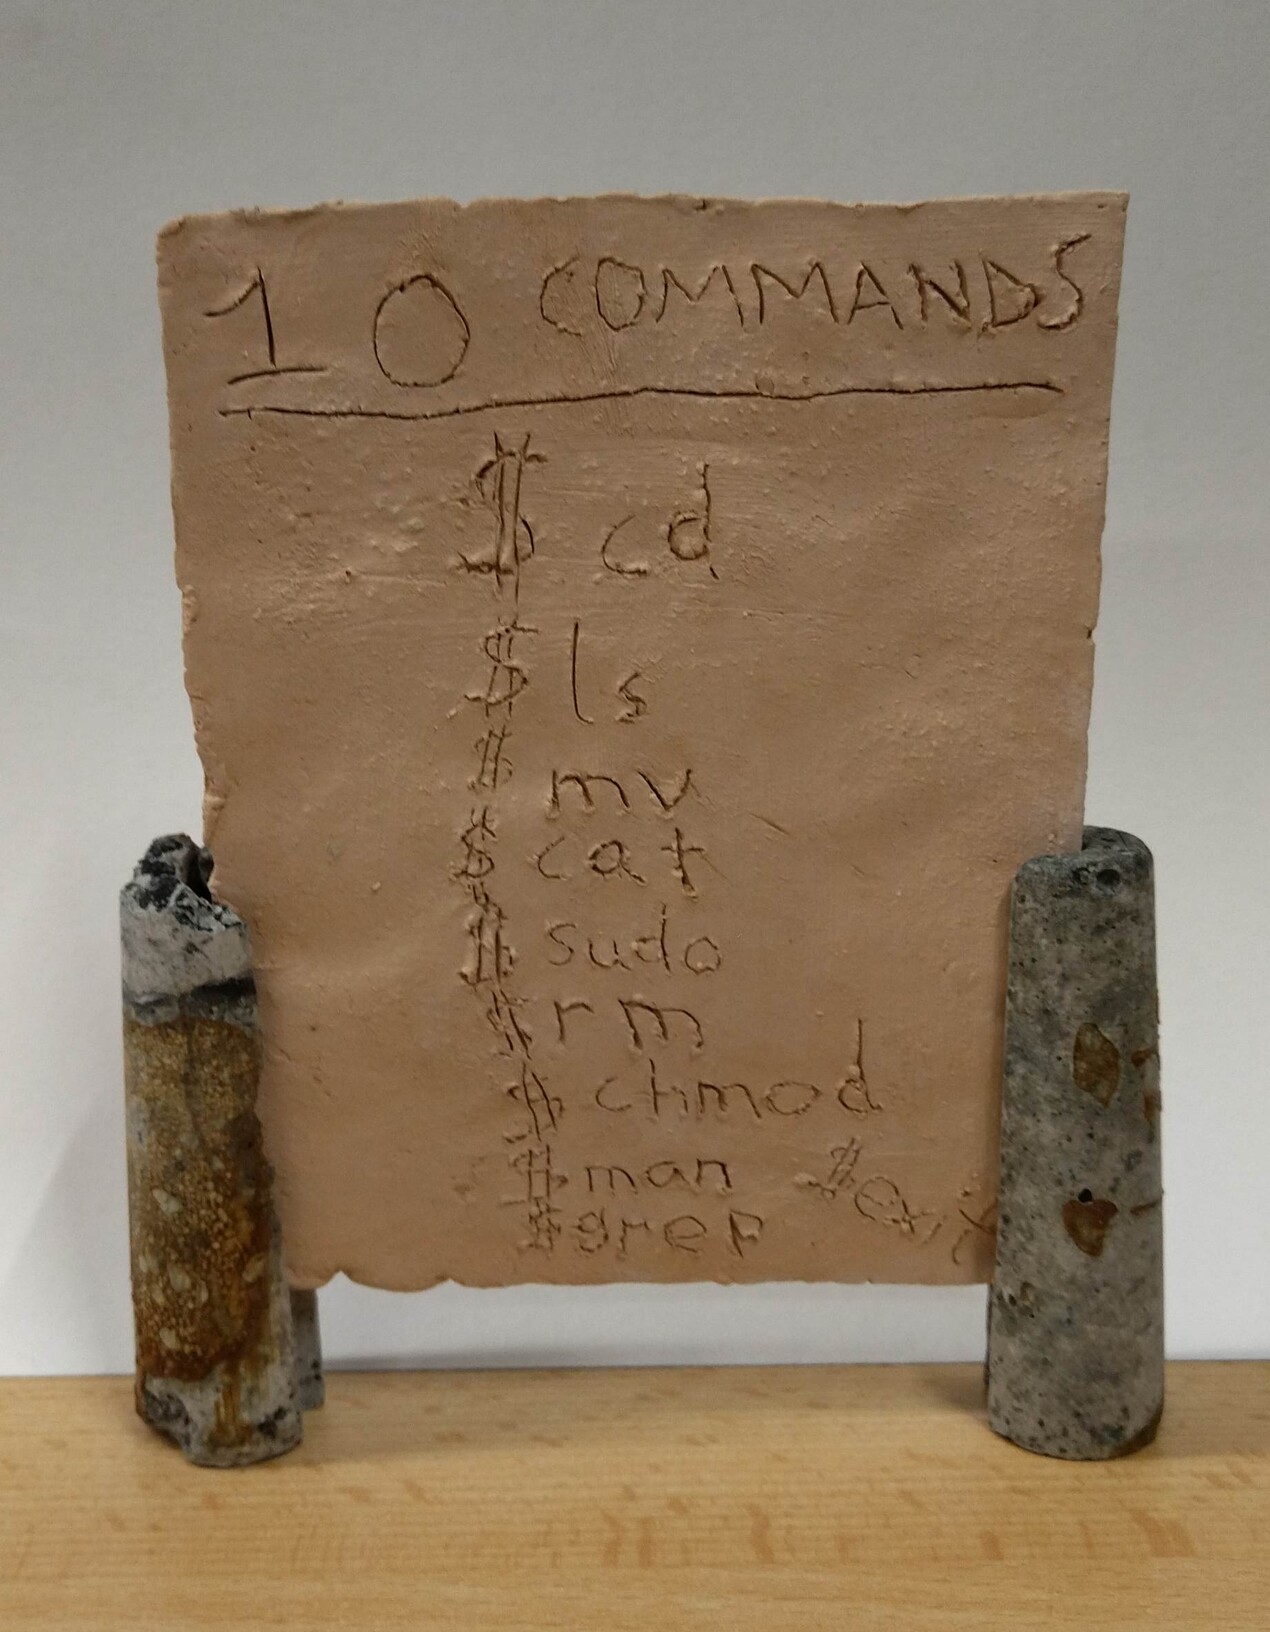 10 COMMANDS
$ cd
$ ls
$ mv
$ cat
$ sudo
$ rm
$ chmod
$ man
$ grep
$ exit